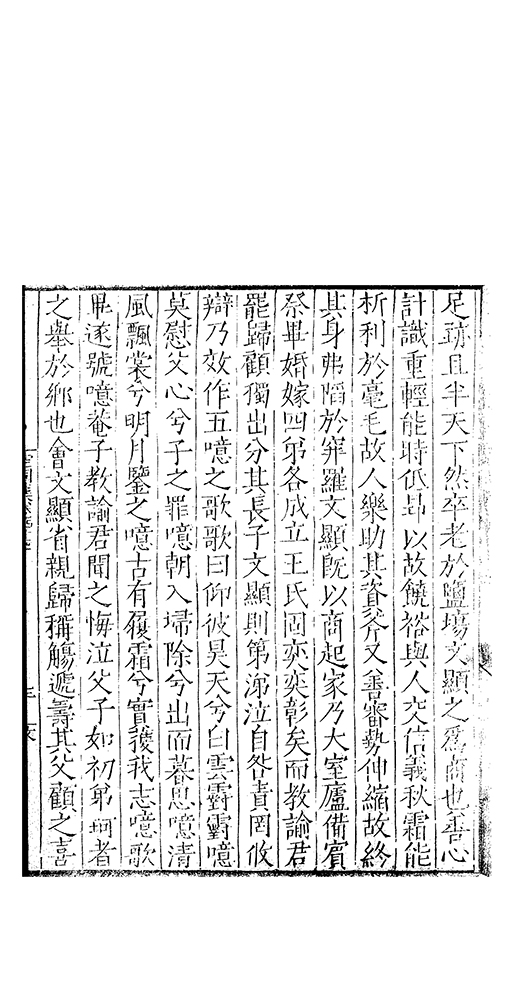 足跡且半天下然卒老於鹽場文顯之爲商也善心
計識重輕能時低昻以故饒裕與人交信義秋霜能
析利於毫毛故人樂助其資斧又善審勢伸縮故終
其身弗陷於穽羅文顯旣以商起家乃大室廬備賓
祭畢婚嫁四弟各成立王氏固奕奕彰矣而教諭君
罷歸顧獨出分其長子文顯則第涕泣自咎責罔攸
辯乃效作五噫之歌歌曰仰彼昊天兮白雲霨霨噫
莫慰父心兮子之罪噫朝入埽除兮出而慕思噫清
風飄棠兮明月鑒之噫古有履霜兮實獲我志噫歌
畢遂號噫菴子教諭君聞之悔泣父子如初弟珂者
之舉於鄉也會文顯省親歸稱觴遞壽其父顧之喜